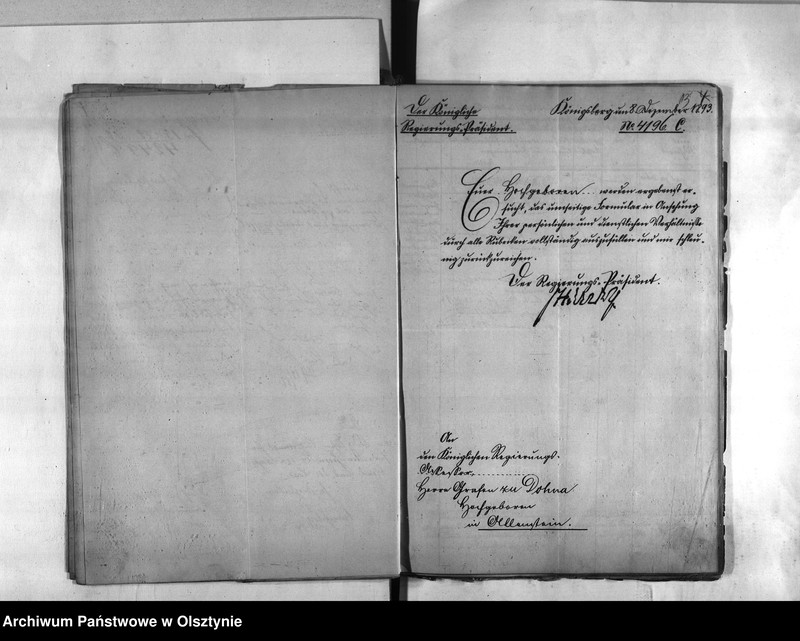 Der Königliche
Regierungs-Präsident.
Königsberg, den 8. Dezember 1893.
No. 4196 C.
Euer Hochgeboren werden ergebenst er-
sucht, das umseitige Formular in Ansehung
Ihrer persönlichen und dienstlichen Verhältnisse
durch alle Rubriken vollständig auszufüllen und mir schleu-
nig zurückzureichen.
Der Regierungs-Präsident.
An
den Königlichen Regierungs-
Assessor
Herrn Grafen zu Dohna
Hochgeboren
in Allenstein.
Archiwum Państwowe w Olsztynie